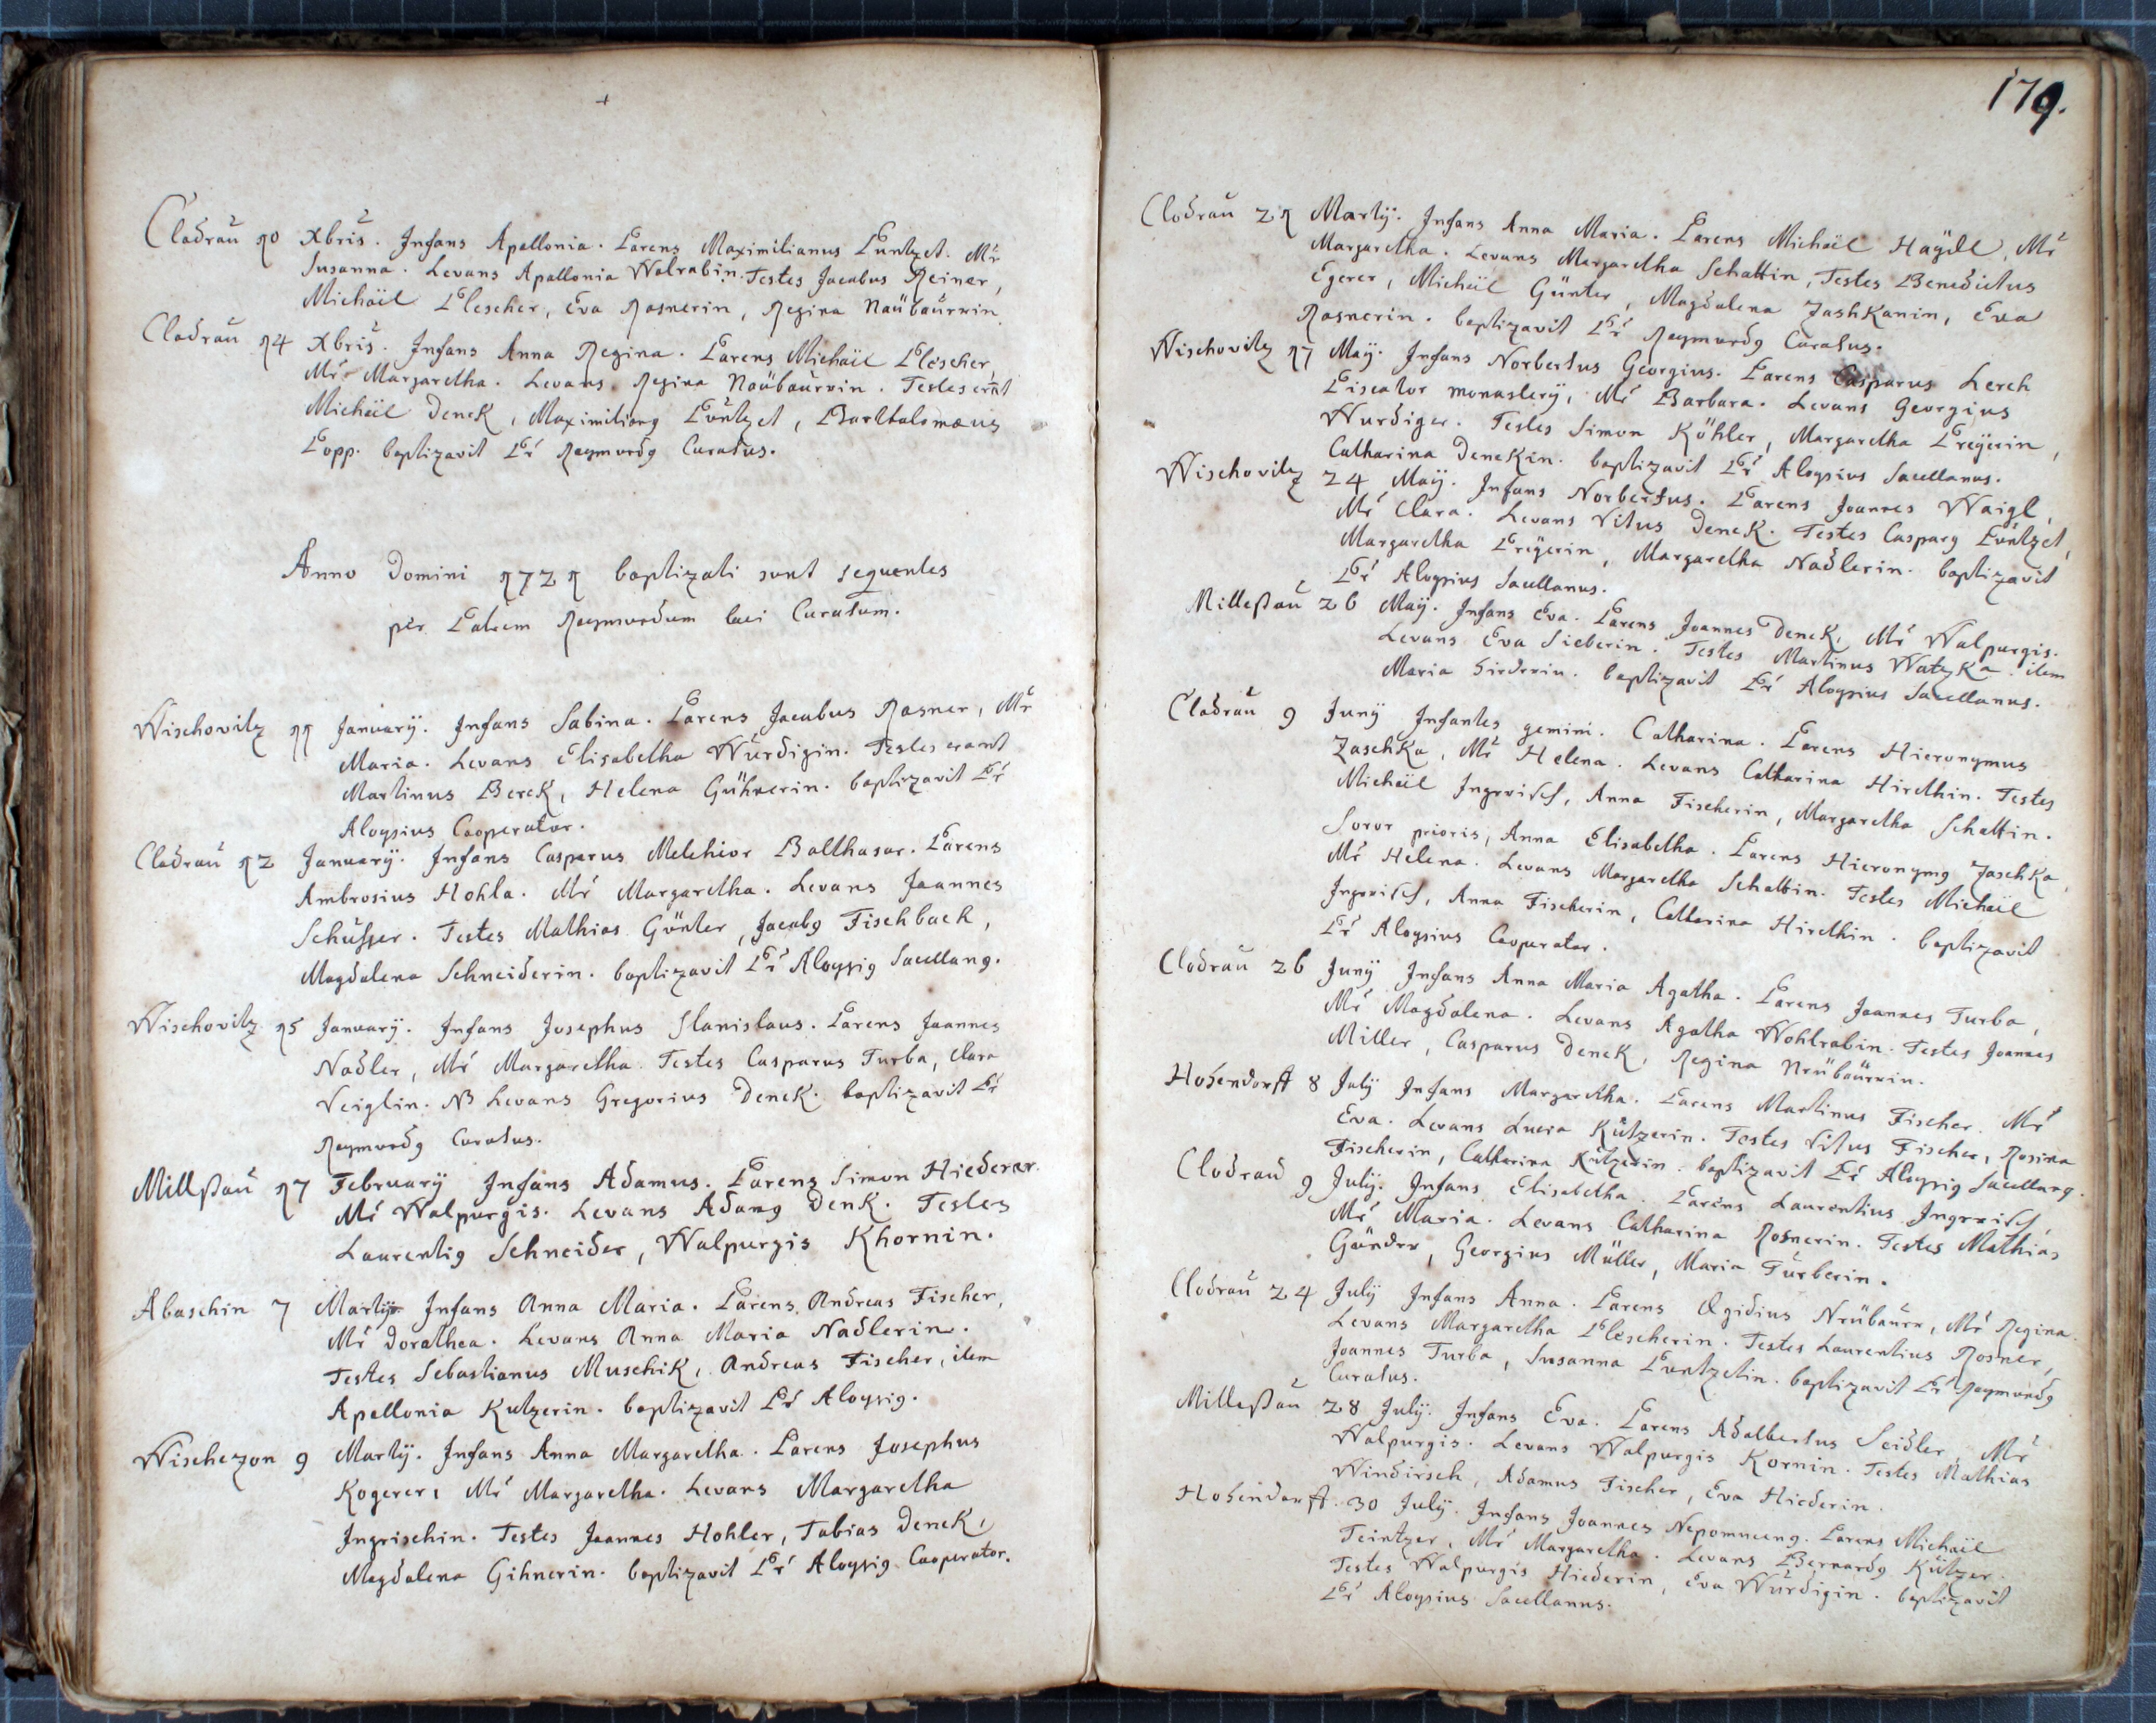 Cladrau 10 Xbris. Infans Apollonia. Parens Maximilianus Puntzet. Mr
Susanna. Levans Apollonia Wolrabin. Testes Jacobus Reiner,
Michäel Plescher, Eva Rosnerin, Regina Naübaürin.
Cladrau 14 Xbris. Infans Anna Regina. Parens Michäel Plescher,
Mr Margaretha. Levans Regina Naübaürin. Testes erãt
Michäel Denck, Maximilianq Püntzet, Barthalomæus
Popp. baptizavit Pr Reymundq Curatus.
Anno Domini 1721 baptizati sunt sequentes
per Patrem Reymundum loci Curatum.
Wischovitz 11 Januarij. Infans Sabina. Parens Jacobus Rosner, Mr
Maria. Levans Elisabetha Würdigin. Testes erant
Martinus Berck, Helena Gühnerin. baptizavit Pr
Aloysius Cooperator.
Cladrau 12 Januarij. Infans Casparus Melchior Balthasar. Parens
Ambrosius Hohla. Mr Margaretha. Levans Joannes
Schusser. Testes Mathias Günter, Jacobq Fischbach,
Magdalena Schneiderin. baptizavit Pr Aloysiq Sacellanq.
Wischovitz 15 Januarij. Infans Josephus Stanislaus. Parens Joannes
Nadler, Mr Margaretha. Testes Casparus Turba, Clara
Veiglin. NB Levans Gregorius Denck. baptizavit Pr
Reymundq Curatus.
Millestau 17 February Infans Adamus. Parens Simon Hiederer.
Mr Walpurgis. Levans Adamq Denk. Testes
Laurentiq Schneider, Walpurgis Khornin.
Abaschin 7 Martij Infans Anna Maria. Parens Andreas Fischer,
Mr Dorothea. Levans Anna Maria Nadlerin.
Testes Sebastianus Muschik, Andreas Fischer, item
Apollonia Kutzerin. baptizavit Pr Aloysiq.
Wischezon 9 Martij. Infans Anna Margaretha. Parens Josephus
Kogerer, Mr Margaretha. Levans Margaretha
Ingrischin. Testes Joannes Hohler, Tobias Denck,
Magdalena Gihnerin. baptizavit Pr Aloysiq Cooperator.
179.
Clodrau 21 Martij. Infans Anna Maria. Parens Michäel Haÿdl, Mr
Margaretha. Levans Margaretha Schattin, Testes Benedictus
Egerer, Michäel Günter, Magdalena Jashkanin, Eva
Rosnerin. baptizavit Pr Reymundq Curatus.
Wischovitz 17 Maÿ. Infans Norbertus Georgius. Parens Casparus Lerch
Piscator monasterÿ, Mr Barbara. Levans Georgius
Wurdiger. Testes Simon Köhler, Margaretha Preÿerin,
Catharina Denckin. baptizavit Pr Aloysius Sacellanus.
Wischovitz 24 Maÿ. Infans Norbertus. Parens Joannes Waigl,
Mr Clara. Levans Vitus Denck. Testes Casparq Püntzet,
Margaretha Preÿerin, Margaretha Nadlerin. baptizavit
Pr Aloysius Sacellanus.
Millestau 26 Maÿ. Infans Eva. Parens Joannes Denck, Mr Walpurgis.
Levans Eva Sieberin. Testes Martinus Watzka item
Maria. baptizavit Pr Aloysius Sacellanus.
Cladrau 9 Junÿ Infantes gemini. Catharina. Parens Hieronymus
Zaschka, Mr Helena. Levans Catharina Hirethin. Testes
Michäel Ingrisch, Anna Fischerin, Margaretha Schattin.
Soror prioris, Anna Elisabetha. Parens Hieronymq Zaschka,
Mr Helena. Levans Margaretha Schattin. Testes Michäel
Ingrisch, Anna Fischerin, Catharina Hirethin. baptizavit
Pr Aloysius Cooperator.
Clodrau 26 Junÿ Infans Anna Maria Agatha. Parens Joannes Turba,
Mr Magdalena. Levans Agatha Wohlrabin. Testes Joannes
Miller, Casparus Denck, Regina Neübaürin.
Hohendorff 8 Julÿ Infans Margaretha. Parens Martinus Fischer. Mr
Eva. Levans Lucia Kützerin. Testes Vitus Fischer, Rosina
Fischerin, Catharina Kützerin. baptizavit Pr Aloysiq Sacellanq.
Clodrau 9 Julÿ. Infans Elisabetha. Parens Laurentius Ingrisch,
Mr Maria. Levans Catharina Rosnerin. Testes Mathias
Günder, Georgius Müller, Maria Turberin.
Clodrau 24 Julÿ Infans Anna. Parens Ægidius Neübaür, Mr Regina.
Levans Margaretha Plescherin. Testes Laurentius Rosner,
Joannes Turba, Susanna Puntzetin. baptizavit Pr Reymundq
Curatus.
Millestau 28 Julÿ. Infans Eva. Parens Adalbertus Seidler, Mr
Walpurgis. Levans Walpurgis Kornin. Testes Mathias
Windirsch, Adamus Fischer, Eva Hiederin.
Hohendorff. 30 Julÿ. Infans Joannes Nepomucenq. Parens Michäel
Teintzer, Mr Margaretha. Levans Bernardq Kützer.
Testes Walpurgis Hiederin, Eva Würdigin. baptizavit
Pr Aloysius Sacellanus.